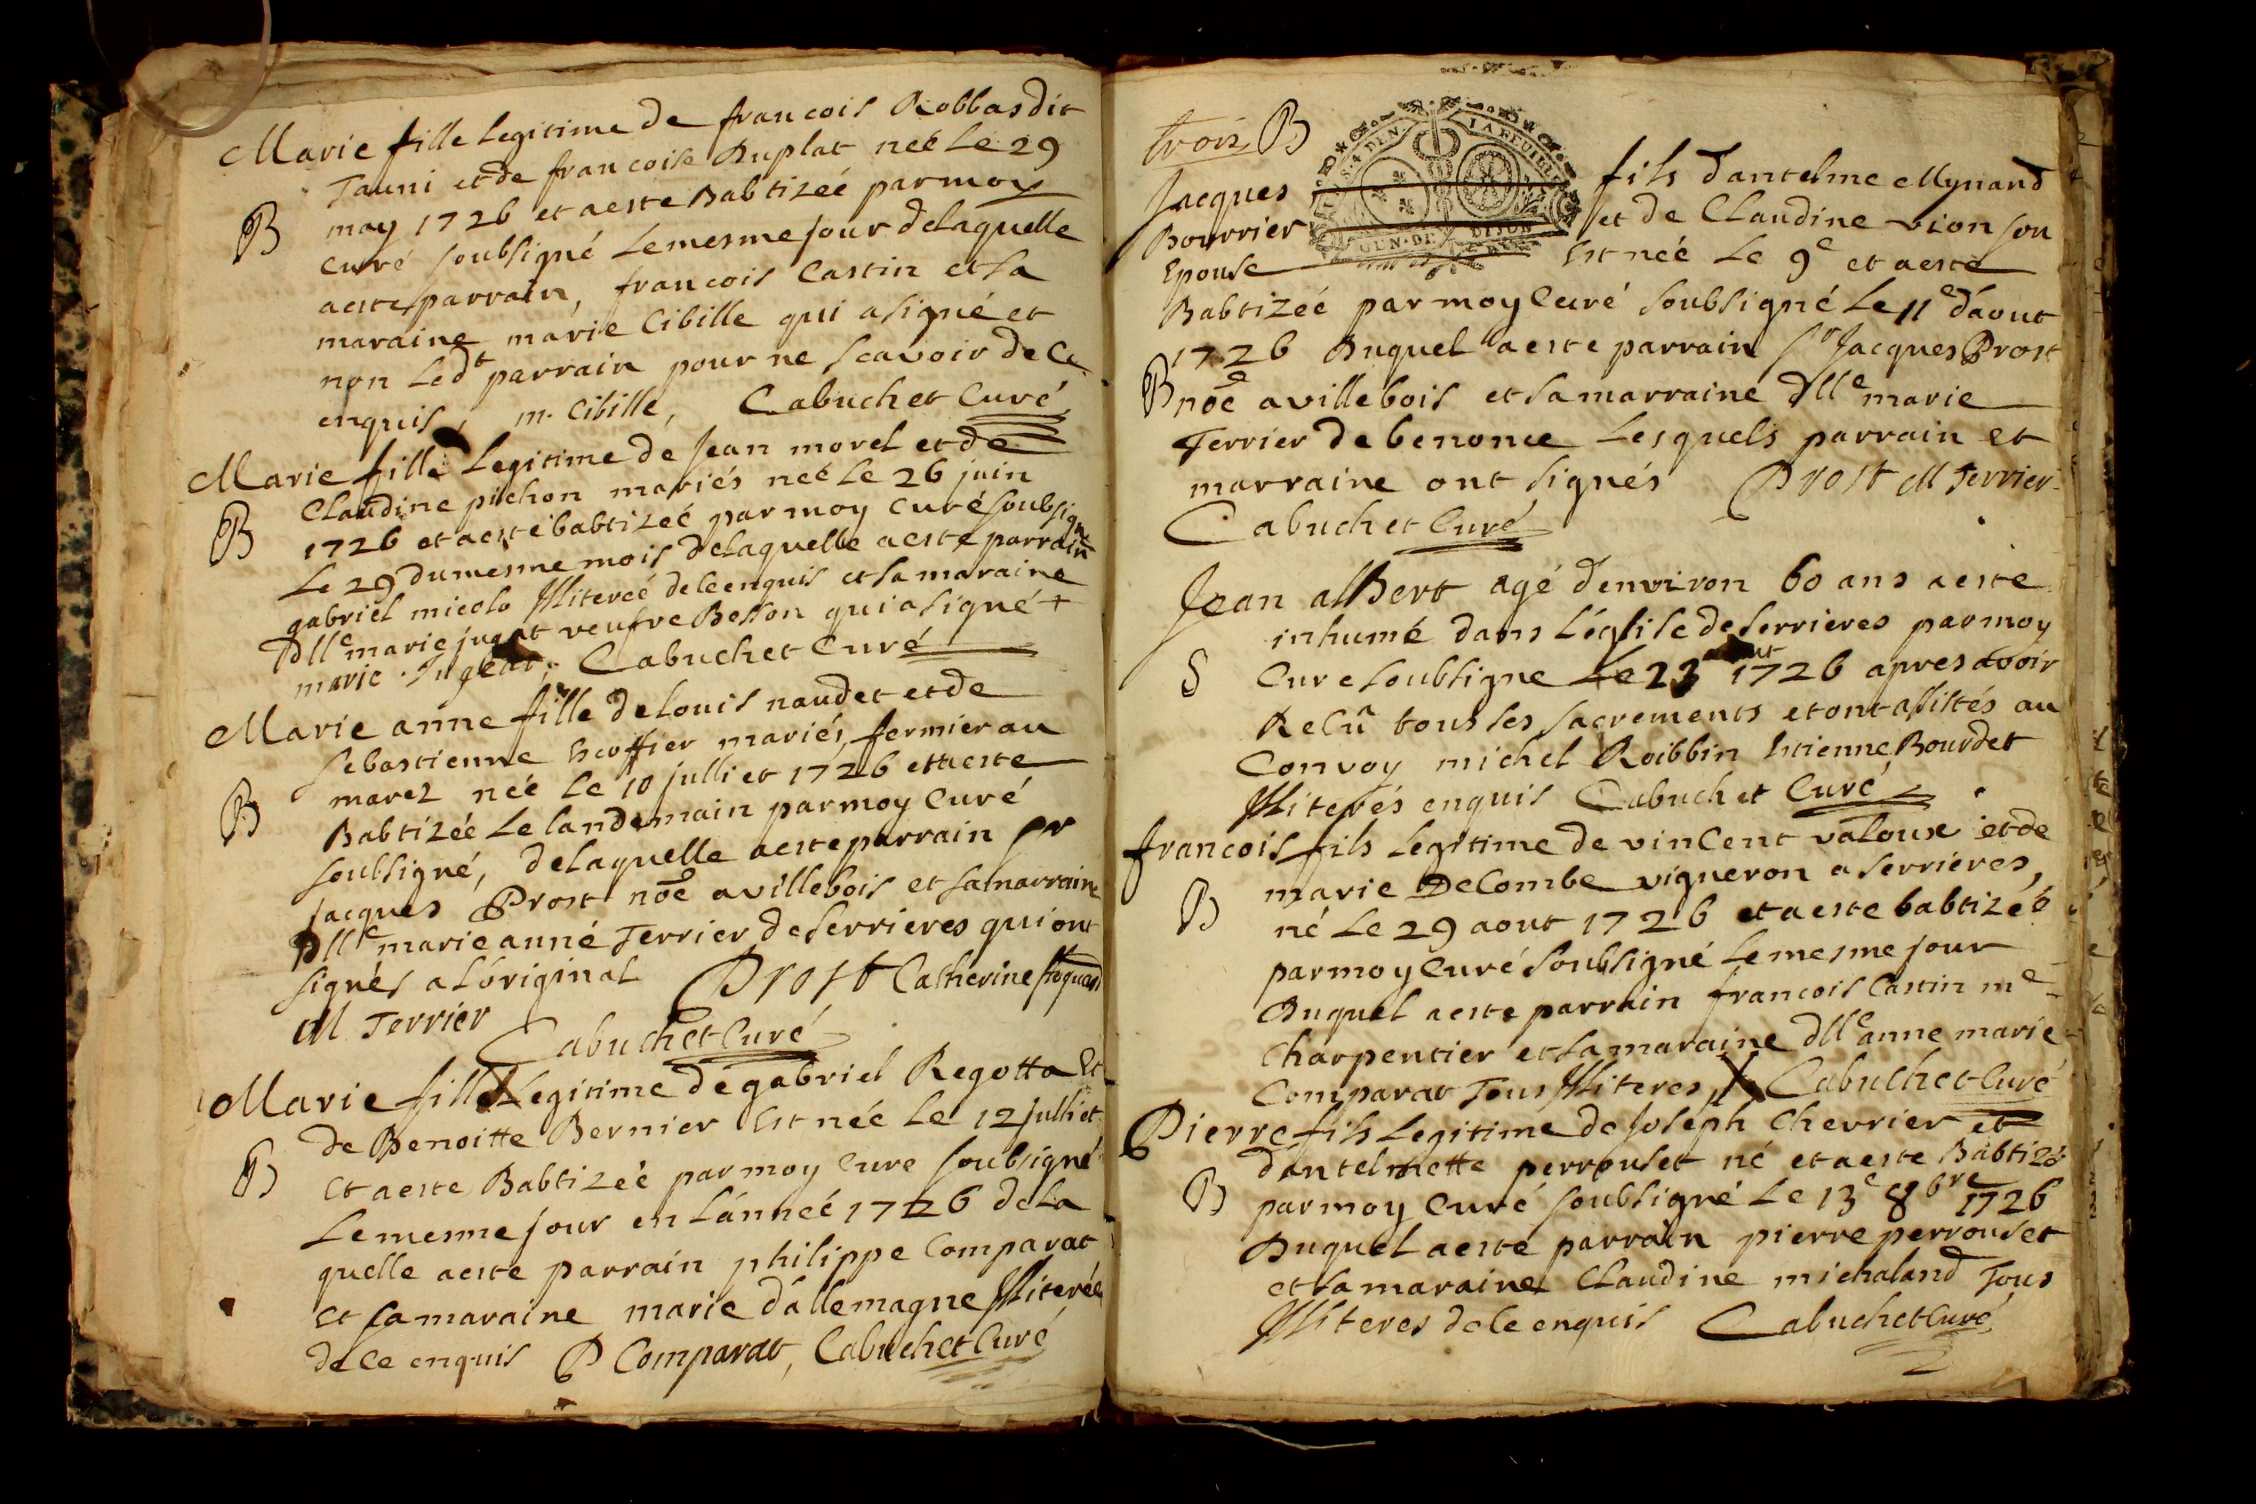 Marie fille legitime de francois Robbas dit
Tauni et de francoise Duplat neé Le 29
B may 1726 et a esté Babtizeé par moy
Curé soubsigné Le mesme jour de laquelle
a esté parrain, francois Castin et sa
maraine marie Cibille qui a signé et
non Ledt parrain pour ne scavoir de ce
enquis, m. Cibille, Cabuchet Curé
Marie fille Legitime de Jean morel et de
Claudine pichon mariés neé Le 26 juin
B 1726 et a esté babtizeé par moy curé soubsigné
Le 29 du mesme mois de laquelle a esté parrain
gabriel miedo Illitereé de ce enquis et sa maraine
Dlle marie veufve Besson qui a signé +
marie Cabuchet Curé
Marie anne fille de Louis naudet et de
sebastienne Escoffier mariés, fermier au
marez née Le 10 julliet 1726 et a esté
B Babtizée Le landemain par moy Curé
soubsigné, de laquelle a esté parrain sr
Jacques Prost noe a villebois et sa marraine
Dlle marie anne Terrier de serrieres qui ont
signés a L'original Prost Catherine
M Terrier
Cabuchet Curé
Marie fille Legitime de gabriel Regotta Et
de Benoitte Bernier Est née Le 12 julliet
B Et a esté Babtizeé par moy Cure soubsigné
Le mesme jour en L'anneé 1726 de la
quelle a esté parrain philippe Comparat
et sa maraine marie d'allemagne Illitereé
de ce enquis P Comparat, Cabuchet Curé
trois B
Jacques fils d'antelme Mynand
Bourrier et de Claudine vion son
Epouse Est neé Le 9e et a esté
Babtizeé par moy Curé soubsigné Le 11e d'aout
1726 Duquel a esté parrain sr Jacques Prost
B noe a villebois et sa marraine dlle marie
Terrier de benonce Lesquels parrain et
marraine ont signés Prost M Terrier
Cabuchet Curé
Jean alBert agé d'environ 60 ans a esté
inhumé dans L'eglise de serrieres par moy
S Cure soubsigne Le 23 1726 apres avoir
Recû tous les sacrements et ont assistés au
Convoy michel Roibbin Estienne Bourdet
Illiterés enquis Cabuchet Curé
francois fils Legitime de vincent valoux et de
marie DeCombe vigneron a serrieres,
B né Le 29 aout 1726 et a esté babtizéé
par moy Curé soubsigné Le mesme jour
Duquel a esté parrain francois Castin me
Charpentier et sa maraine dlle anne marie
Comparat Tous Illiteres, Cabuchet Curé
Pierre fils Legitime de Joseph Chevrier et
d'antelmette perrouset né et a esté Babtizé
B par moy Curé soubsigné Le 13e 8bre 1726
Duquel a esté parrain pierre perrouset
et sa maraine Claudine michaland Tous
Illiteres de ce enquis Cabuchet Curé